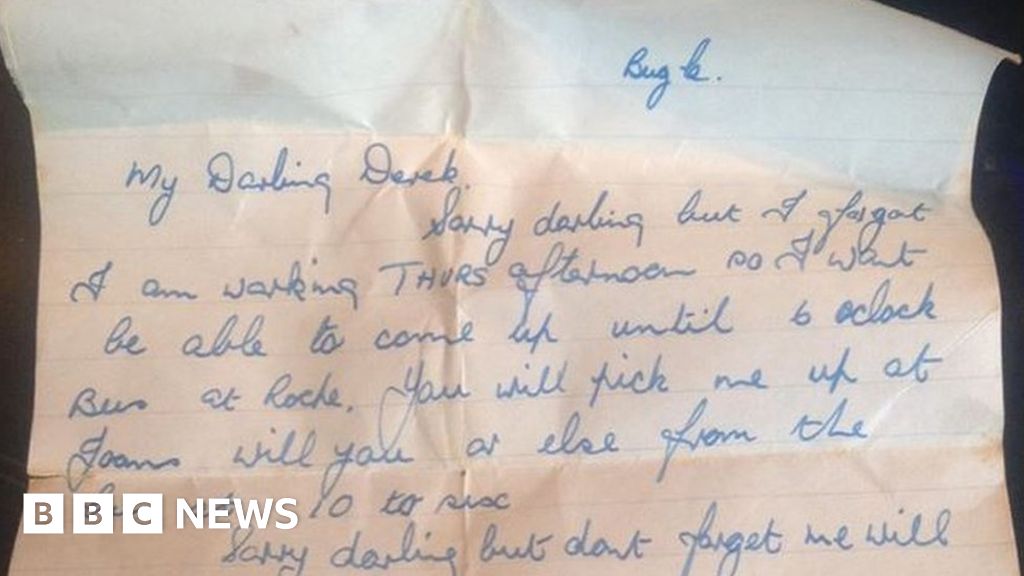 Bugle.
My Darling Derek.
Sorry darling but I forgot
I am working THURS afternoon so I want
be able to come up until 6 oclock
Bus at Roche. You will pick me up at
Joans will you or else from the
10 to six
Sorry darling but dont forget me will
BBC NEWS